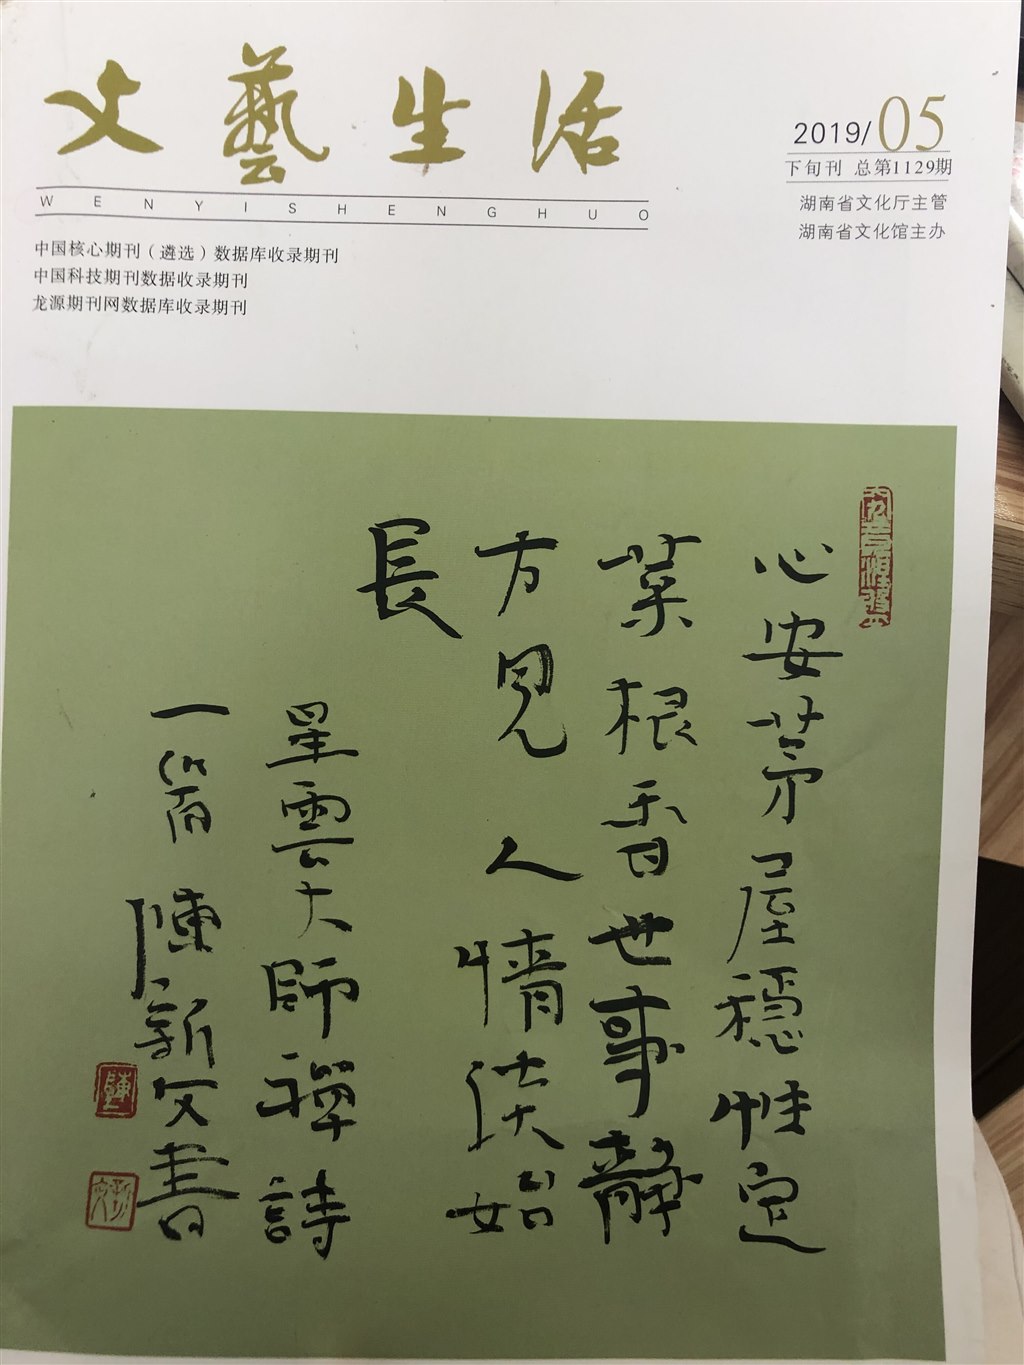 文藝生活
WENYISHENGHUO
2019/05
下旬刊 总第1129期
湖南省文化厅主管
湖南省文化馆主办
中国核心期刊（遴选）数据库收录期刊
中国科技期刊数据收录期刊
龙源期刊网数据库收录期刊
心安茅屋穩性定
菜根香世事靜
方見人情淡始
長
星雲大師禪詩
一百 陳新文書